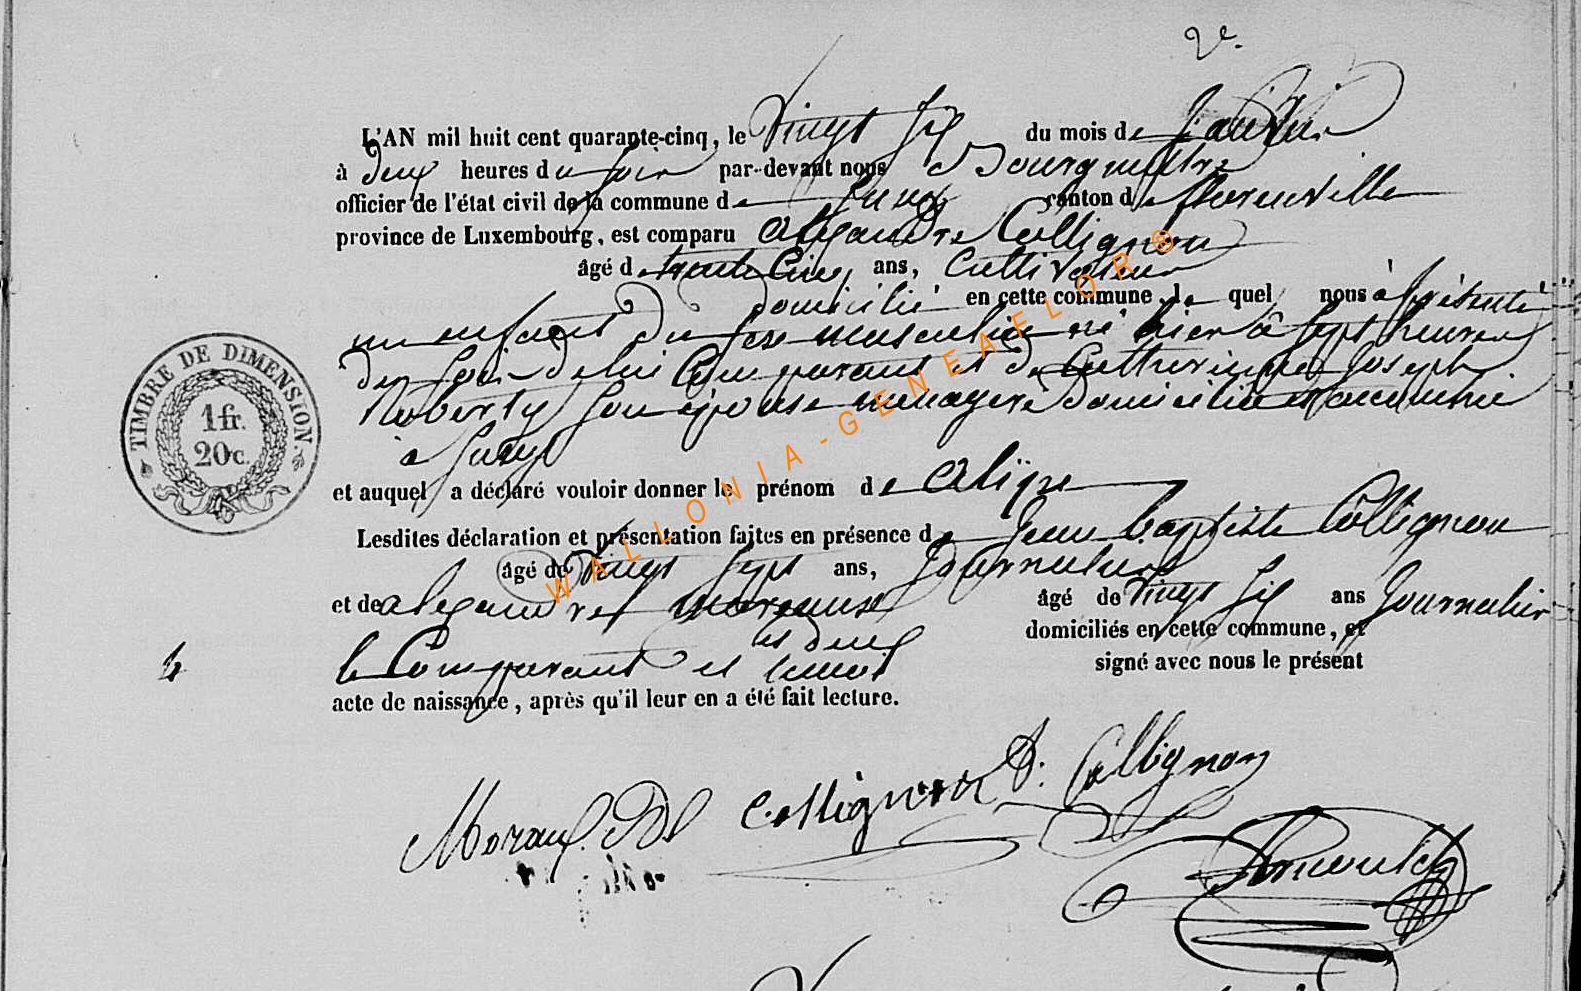 2e.
L'AN mil huit cent quarante-cinq, le Vingt six du mois de Janvier
à deux heures du soir par-devant nous Bourgmestre
officier de l'état civil de la commune de canton de florenville
province de Luxembourg, est comparu alexandre Collignon
âgé de trente cinq ans, Cultivateur
domicilié en cette commune, lequel nous à présenté
un enfant du sexe masculin né hier à sept heures
du soir de lui Comparant et de Catherine Joseph
son épouse menagere domiciliée et
à
et auquel a déclaré vouloir donner le prénom de
Lesdites déclaration et présentation faites en présence de Jean baptiste Collignon
âgé de vingt sept ans, Journalier
et de alexandre âgé de vingt six ans Journalier
domiciliés en cette commune, et
et deux
le Comparant et temoins signé avec nous le présent
acte de naissance, après qu'il leur en a été fait lecture.
Collignon D. Collignon
TIMBRE DE DIMENSION.
1 fr.
20 c.
WALLONIA-GENEAFLOR®